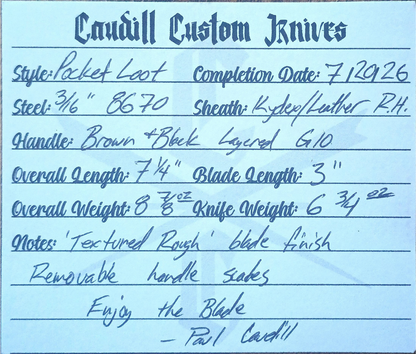 Caudill Custom Knives
Style: Pocket Loot Completion Date: 7/29/26
Steel: 3/16" 8670 Sheath: Kydex/Leather R.H.
Handle: Brown + Black Layered G10
Overall Length: 7 1/4" Blade Length: 3"
Overall Weight: 8 7/8 oz Knife Weight: 6 3/4 oz
Notes: 'Textured Rough' blade finish
Removable handle scales
Enjoy the Blade
- Paul Caudill